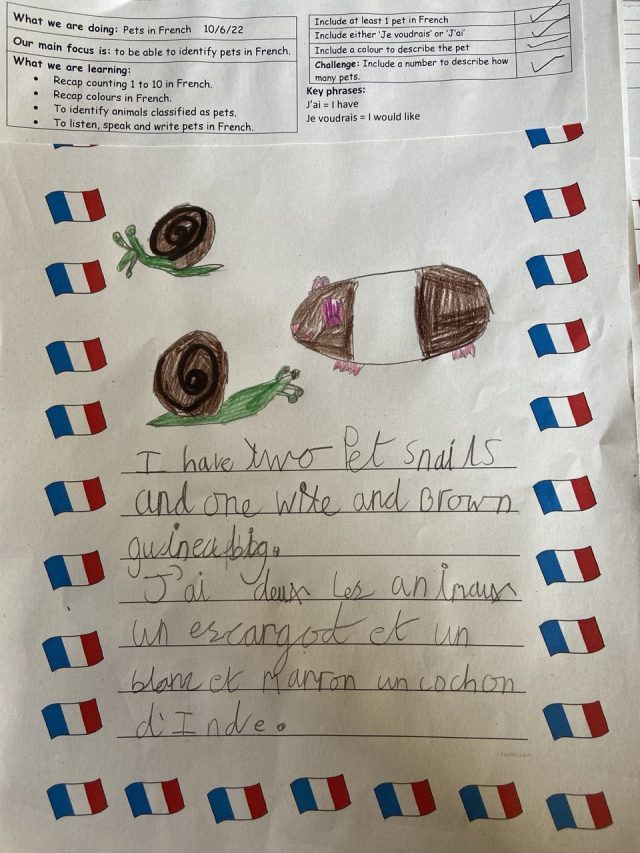 What we are doing: Pets in French 10/6/22
Our main focus is: to be able to identify pets in French.
What we are learning:
• Recap counting 1 to 10 in French.
• Recap colours in French.
• To identify animals classified as pets.
• To listen, speak and write pets in French.
Include at least 1 pet in French
Include either 'Je voudrais' or 'J'ai'
Include a colour to describe the pet
Challenge: Include a number to describe how
many pets.
Key phrases:
J'ai = I have
Je voudrais = I would like
I have two Pet snails
and one wite and Brown
guinea big.
J'ai deux Les animaux
un escargot et un
blanc et Marron un cochon
d'Inde.